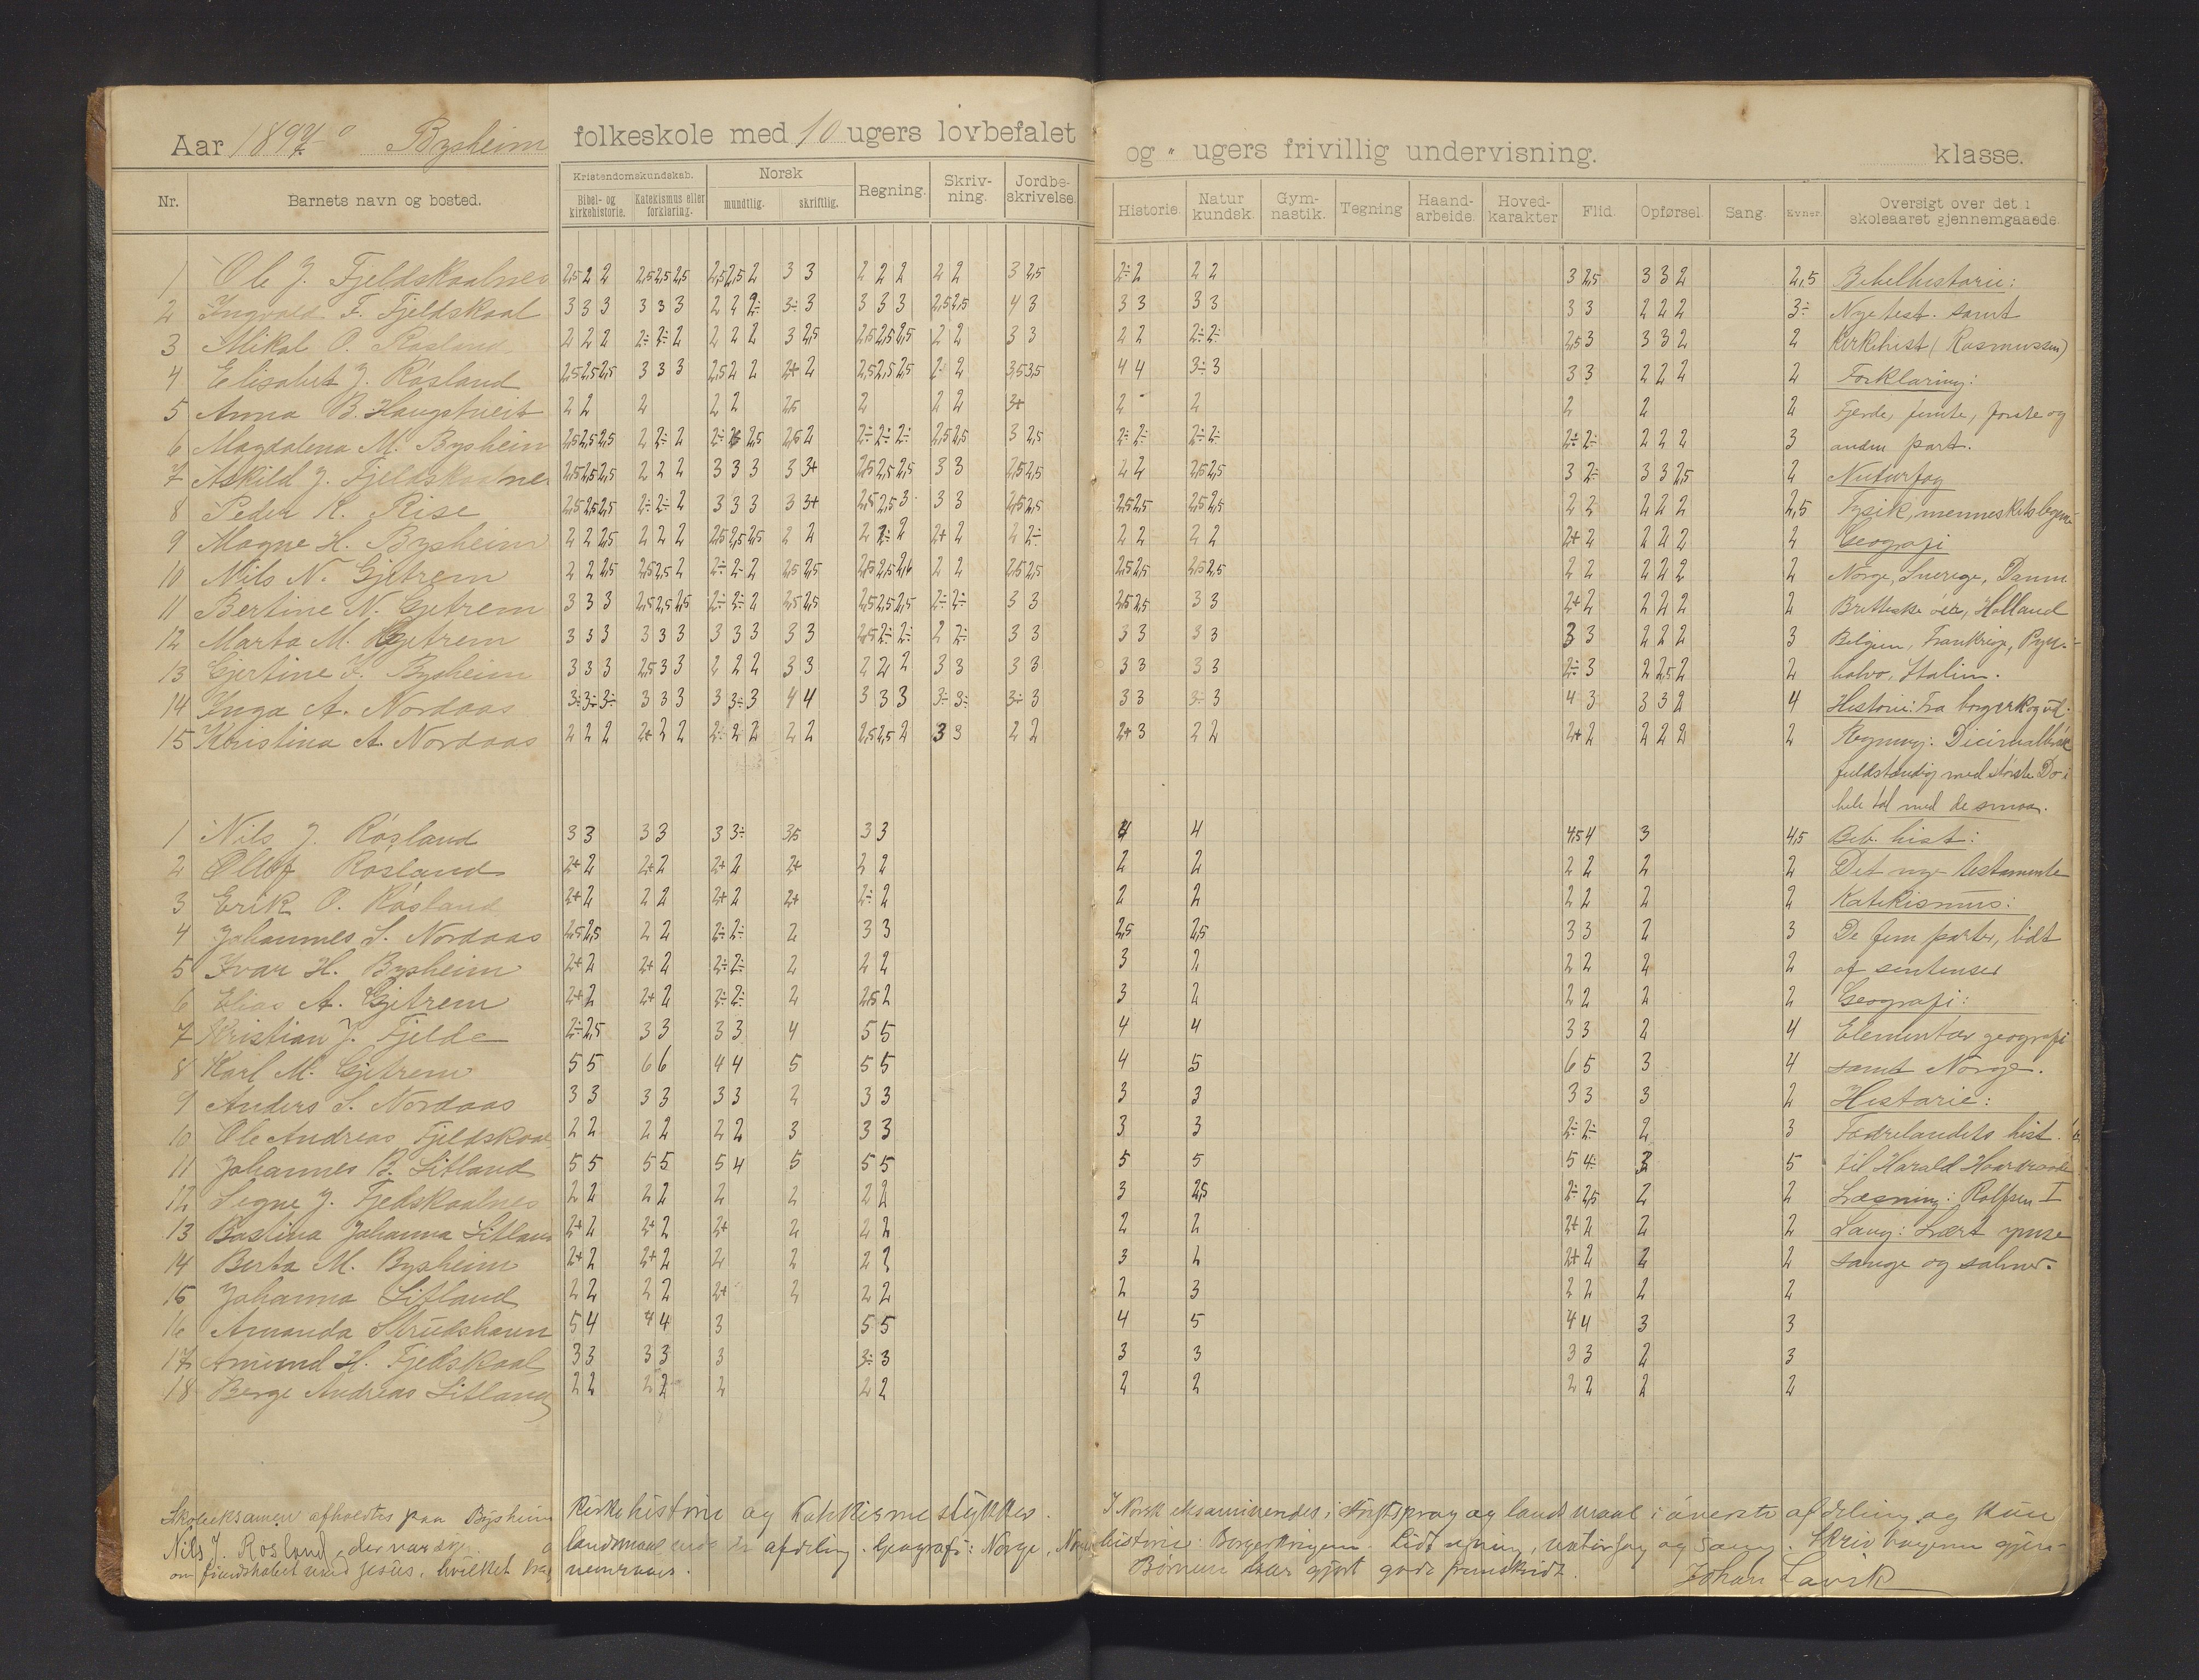 Aar 1897 Bysheim folkeskole med 10 ugers lovbefalet og " ugers frivillig undervisning. klasse.
Nr. Barnets navn og bosted. Kristendomskundskab. Bibel- og kirkehistorie. Katekismus eller forklaring. Norsk mundtlig. skriftlig. Regning. Skriv-ning. Jordbe-skrivelse. Historie. Natur kundsk. Gym-nastik. Tegning Haand-arbeide. Hoved-karakter Flid. Opførsel. Sang. Evner. Oversigt over det i skoleaaret gjennemgaaede.
1 Ole J. Fjeldskaalnes 2,5 2 2 2,5 2,5 2,5 2,5 2,5 2 3 3 2 2 2 2 2 3 2,5 2÷ 2 2 2 3 2,5 3 3 2 2,5 Bibelhistorie:
2 Ingvald F. Fjeldskaal 3 3 3 3 3 3 2 2 2÷ 3÷ 3 3 3 3 2,5 2,5 4 3 3 3 3 3 3 3 2 2 2 3÷ Nye test. samt
3 Mikal O. Røsland 2 2 2 2÷ 2÷ 2 2 2 2 3 2,5 2,5 2,5 2,5 2 2 3 3 2 2 2÷ 2÷ 2,5 3 3 3 2 2 kirkehist (Rasmussen)
4 Elisabet J. Røsland 2,5 2,5 2,5 3 3 3 2,5 2 2 2+ 2 2,5 2,5 2,5 2÷ 2 3,5 3,5 4 4 3÷ 3 3 3 2 2 2 2 Forklaring:
5 Anna B. Haugstneit 2 2 2 2 2 2,5 2 2 2 3+ 2 - 2 2 2 2 Fjerde, femte, første og
6 Magdalena M. Bysheim 2,5 2,5 2,5 2 2÷ 2 2÷ 2,5 2,5 2 2÷ 2÷ 2÷ 2,5 2,5 3 2,5 2÷ 2÷ 2÷ 2÷ 2÷ 2÷ 2 2 2 3 anden part.
7 Askild J. Fjeldskaalnes 2,5 2,5 2,5 2 2 2 3 3 3 3 3+ 2,5 2,5 2,5 3 3 2,5 2,5 2 2 2,5 2,5 3 2÷ 3 3 2,5 2 Naturfag
8 Peder K. Rise 2,5 2,5 2,5 2÷ 2÷ 2 3 3 3 3 3+ 2,5 2,5 3 3 3 2,5 2,5 2,5 2,5 2,5 2,5 2 2 2 2 2 2,5 Fysik, menneskets legeme
9 Magne H. Bysheim 2 2 2,5 2 2 2 2,5 2,5 2,5 2 2 2 2÷ 2 2+ 2 2 2÷ 2 2 2 2 2+ 2 2 2 2 2 Geografi
10 Nils N. Gjetrem 2 2 2,5 2,5 2,5 2 2÷ 2÷ 2 2,5 2,5 2,5 2,5 2,5 2 2 2,5 2,5 2,5 2,5 2,5 2,5 2 2 2 2 2 2 Norge, Sverige, Danm.
11 Bertine N. Gjetrem 3 3 3 2,5 2,5 2,5 2÷ 2÷ 2 2,5 2,5 2,5 2,5 2,5 2÷ 2÷ 3 3 2,5 2,5 3 3 2+ 2 2 2 2 2 Britteske øer, Holland
12 Marta M. Gjetrem 3 3 3 3 3 3 3 3 3 3 3 2,5 2÷ 2÷ 2 2÷ 3 3 3 3 3 3 3 3 2 2 2 3 Belgien, Frankrige, Pyr.-
13 Gjertine I. Bysheim 3 3 3 2,5 3 3 2 2 2 3 3 2 2 2 3 3 3 3 3 3 3 3 2÷ 3 2 2,5 2 2 halvø, Italien.
14 Inga A. Nordaas 3÷ 3÷ 3÷ 3 3 3 3 3÷ 3 4 4 3 3 3 3÷ 3÷ 3÷ 3 3 3 3÷ 3 4 3 3 3 2 4 Historie: Fra borgerkrig. ut.
15 Kristina A. Nordaas 2 2 2 2+ 2 2 2÷ 2 2 2 2 2,5 2,5 2 3 3 2 2 2+ 3 2 2 2+ 2 2 2 2 2 Regning: Decimalbrøk
fuldstændig med største Do i
hele tal med de smaa.
1 Nils J. Røsland 3 3 3 3 3 3÷ 3,5 3 3 4 4 4,5 4 3 4,5 Bib. hist:
2 Olaf Røsland 2+ 2 2+ 2 2+ 2 2+ 2 2 2 2 2 2 2 2 Det nye testamente
3 Erik O. Røsland 2+ 2 2 2 2+ 2 2+ 2÷ 2 2 2 2 2 2 2 Katekismus:
4 Johannes S. Nordaas 2,5 2,5 2 2 2÷ 2÷ 2 3 3 2,5 2,5 3 3 2 3 De fem parter, lidt
5 Ivar H. Bysheim 2+ 2 2+ 2 2÷ 2÷ 2 2 2 3 2 2 2 2 2 af sentenser
6 Elias A. Gjetrem 2+ 2 2+ 2 2÷ 2÷ 2 2,5 2 3 2 2 2 2 2 Geografi:
7 Kristian J. Fjelde 2÷ 2,5 3 3 3 3 4 5 5 4 4 3 3 2 4 Elementær geografi
8 Karl M. Gjetrem 5 5 6 6 4 4 5 5 5 4 5 6 5 3 4 samt Norge.
9 Anders S. Nordaas 3 3 3 3 3 3 2 3 3 3 3 3 3 3 2 Historie:
10 Ole Andreas Fjeldskaal 2 2 2 2 2 2 3 3 3 3 3 2÷ 2÷ 2 3 Fædrelandets hist.
11 Johannes B. Litland 5 5 5 5 5 4 5 5 5 5 5 5 4÷ 3 5 til Harald Haardraade
12 Signe J. Fjedskaalnes 2 2 2 2 2 2 2 2 3 2,5 2÷ 2,5 2 2 Læsning: Rolfsen I
13 Bastina Johanna Litland 2+ 2 2+ 2 2+ 2 2 2 2 2 2+ 2 2 2 Sang: Lært ymse
14 Berta M. Bysheim 2+ 2 2+ 2 2 2 2 2 3 2 2+ 2 2 2 sange og salmer.
15 Johanna Litland 2 2 2 2 2+ 2 2 2 2 3 2 2 2 2
16 Amanda Strudshavn 5 4 4 4 3 5 5 4 5 4 4 3 3
17 Amund H. Fjedskaal 3 3 3 3 3 3÷ 3 3 3 3 3 2 3
18 Berge Andreas Litland 2 2 2 2 2 2 2 2 2 2 2 2 2
Skoleeksamen afholdtes paa Bysheim
Nils J. Røsland, der var syg.
om fiendskabet mod Jesus, hvilket
Kirkehistorie og Katekismestykker.
landsmaal afdeling. Geografi: Norge,
I Norsk eksamineredes i bogsprog og landsmaal i øverste afdeling og kun
historie: Borgerkrigene. Lidt regning, naturfag og sang. Skrivbøgerne
Børnene har gjort gode fremskridt. Johan Lavik